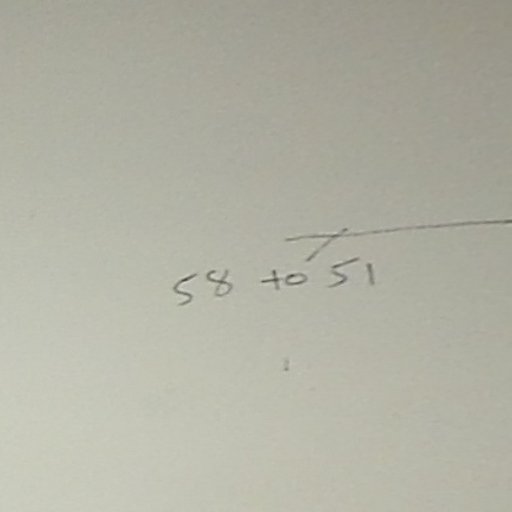 58 to 51